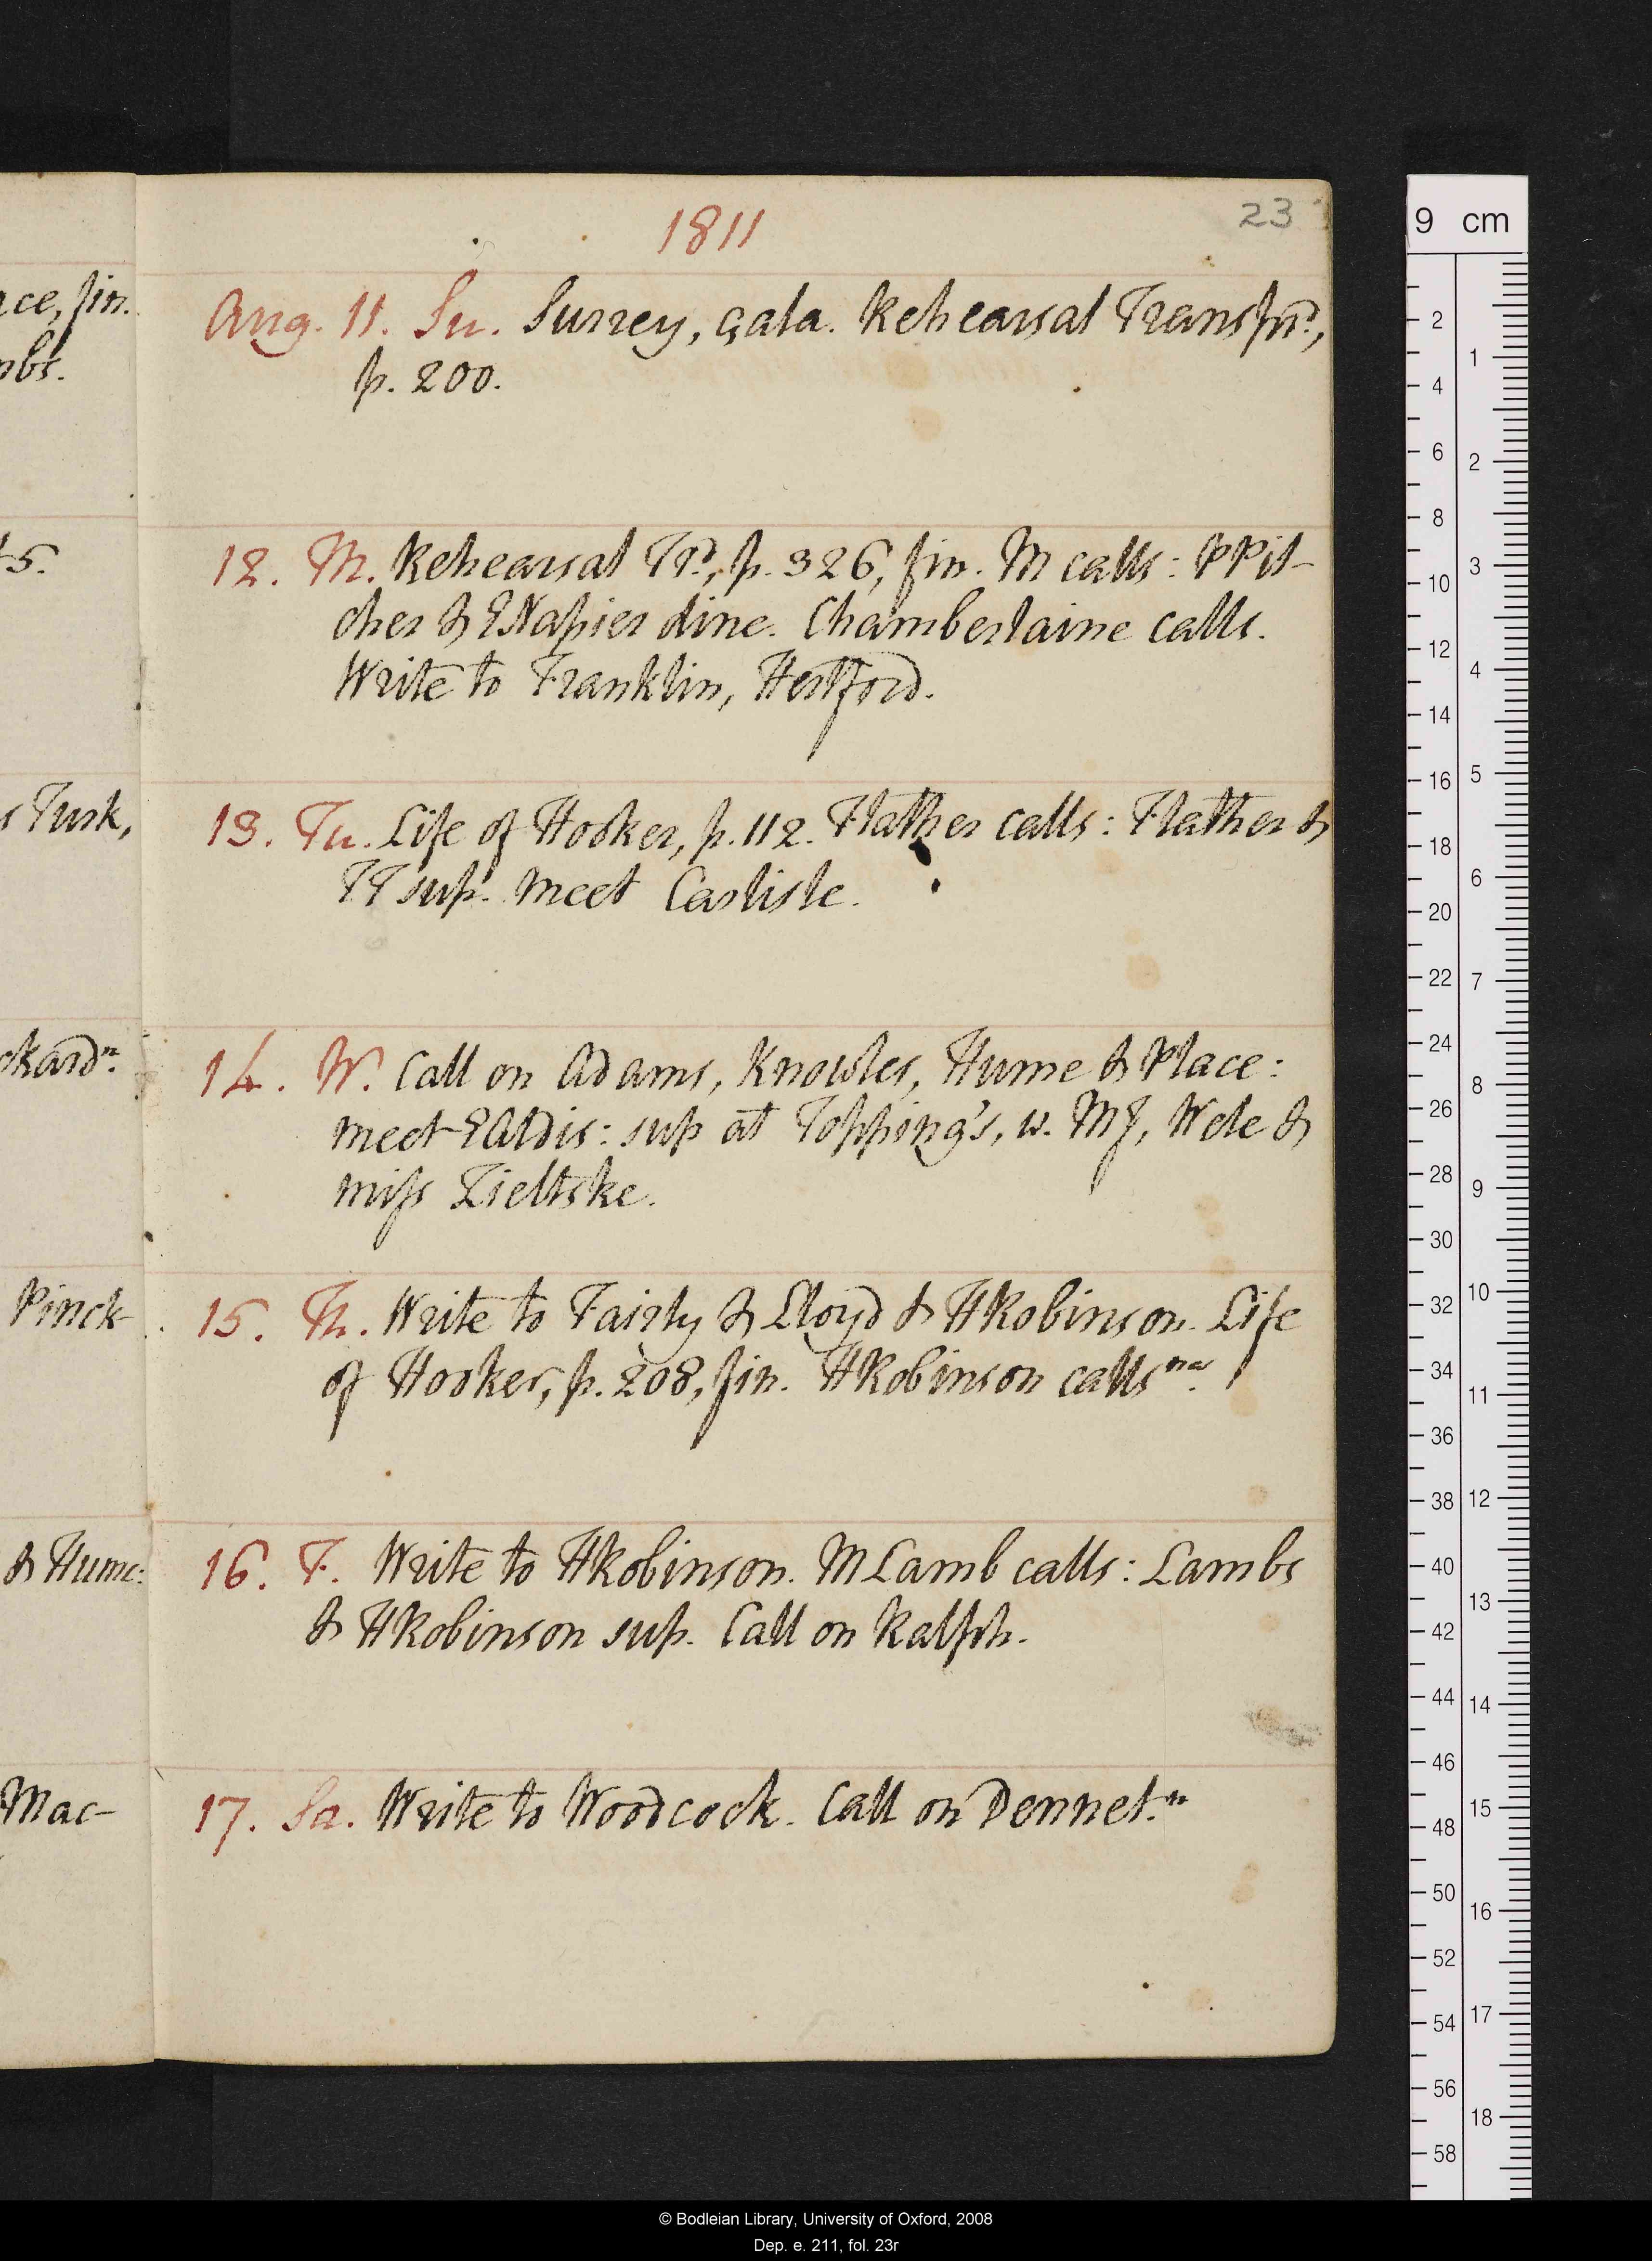 1811
23
ce, fin.
mbs.
Aug. 11. Su. Surrey, gala. Rehearsal Transprd,
p. 200.
5.
12. M. Rehearsal Trd, p. 326, fin. M calls: PPit-
cher & ENapier dine. Chamberlaine calls.
Write to Franklin, Hertford.
Turk,
13. Tu. Life of Hooker, p. 112. Flather calls: Flather &
TT sup. meet Carlisle.
ckardn.
14. W. Call on Adams, Knowles, Hume & Place:
meet EAldis: sup at Topping's, w. MJ, Wele &
miss Zieltske.
Pinck-
15. Th. Write to Fairly & Lloyd & HRobinson. Life
of Hooker, p. 208, fin. HRobinson calls na.
& Hume:
16. F. Write to HRobinson. MLamb calls: Lambs
& HRobinson sup. Call on Ralph.
Mac-
17. Sa. Write to Woodcock. Call on Dennet.n
9 cm
2 4 6 8 10 12 14 16 18 20 22 24 26 28 30 32 34 36 38 40 42 44 46 48 50 52 54 56 58
1 2 3 4 5 6 7 8 9 10 11 12 13 14 15 16 17 18
© Bodleian Library, University of Oxford, 2008
Dep. e. 211, fol. 23r